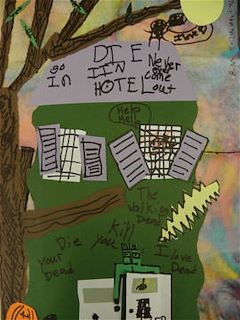 DIE
go IIEN Never
In HOTEL come out
Help
Help
The
walking
Dead
kill
Die you
your I love
Dead Dead